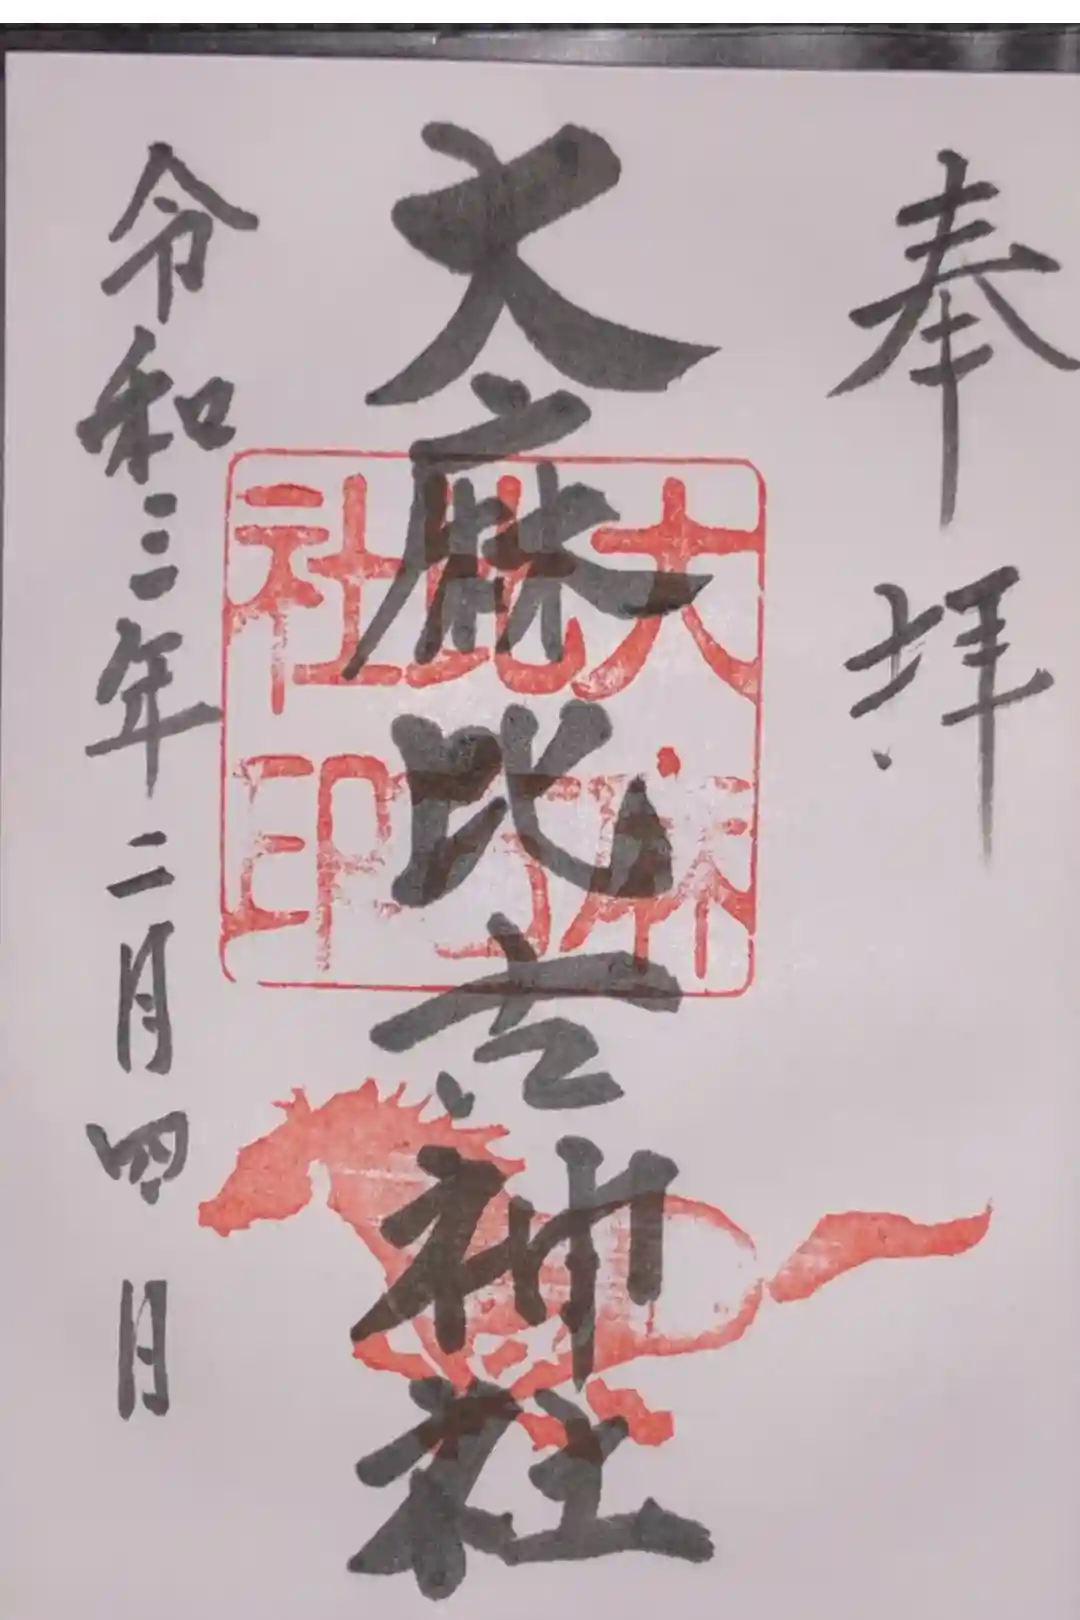 奉拝
大麻比古神社
令和三年二月四日
大麻比古社印